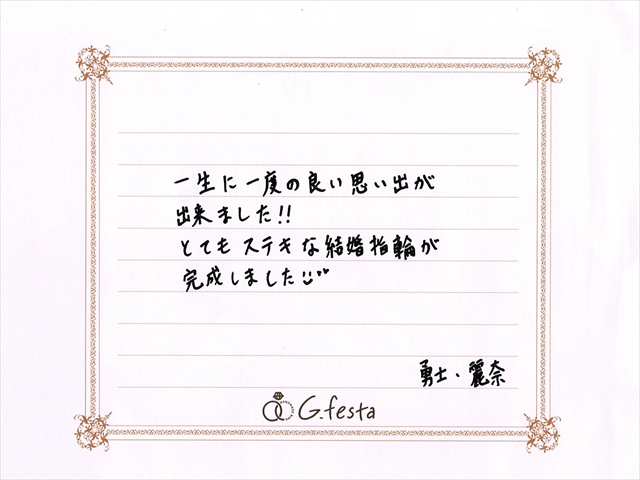 一生に一度の良い思い出が
出来ました!!
とてもステキな結婚指輪が
完成しました
勇士・麗奈
G.festa